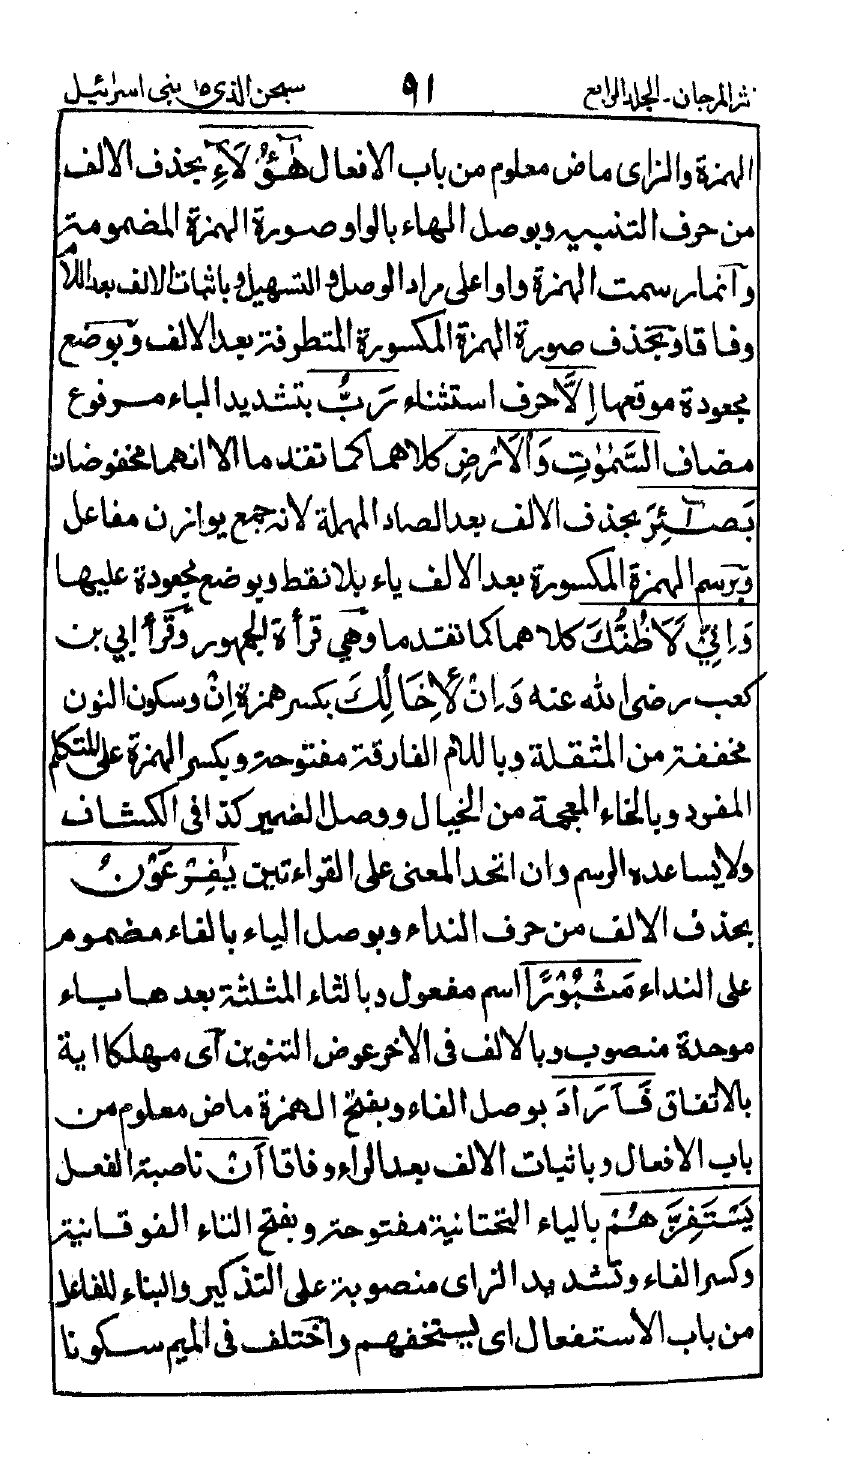 نثر المرجان - المجلد الرابع ٩١ سبحن الذی ١٥ بنی اسرائیل
الهمزة والزای ماض معلوم من باب الافعال هٰٓؤُلَآءِ بحذف الالف
من حرف التنبیه وبوصل الهاء بالواو صورة الهمزة المضمومة
وانما رسمت الهمزة واوا علی مراد الوصل والتسهیل وباثبات الالف بعد اللام
وفاقا وبحذف صورة الهمزة المکسورة المتطرفة بعد الالف وبوضع
مجعودة موقعها اِلَّا حرف استثناء رَبُّ بتشدید الباء مرفوع
مضاف السَّمٰوٰتِ وَالْاَرْضِ کلاهما کما تقدما الا انهما مخفوضان
بَصَآئِرَ بحذف الالف بعد الصاد المهملة لانه جمع یوازن مفاعل
وترسم الهمزة المکسورة بعد الالف یاء بلا نقط وبوضع مجعودة علیها
وَاِنِّیْ لَاَظُنُّكَ کلاهما کما تقدما وهی قرأة الجمهور وقرأ ابی بن
کعب رضی الله عنه وَاِنْ لَاِخَالُكَ بکسر همزة اِنْ وسکون النون
مخففة من المثقلة وباللام الفارقة مفتوحة وبکسر الهمزة علی المتکلم
المفرد وبالخاء المعجمة من الخیال ووصل الضمیر کذا فی الکشاف
ولا یساعده الرسم وان اتحد المعنی علی القراءتین یٰفِرْعَوْنُ
بحذف الالف من حرف النداء وبوصل الیاء بالفاء مضموم
علی النداء مَثْبُوْرًا اسم مفعول وبالثاء المثلثة بعدها باء
موحدة منصوب وبالالف فی الاخر عوض التنوین ای مهلکا ایة
بالاتفاق فَاَرَادَ بوصل الفاء وبفتح الهمزة ماض معلوم من
باب الافعال وباثبات الالف بعد الراء وفاقا اَنْ ناصبة الفعل
یَسْتَفِزَّهُمْ بالیاء التحتانیة مفتوحة وبفتح التاء الفوقانیة
وکسر الفاء وتشدید الزای منصوبة علی التذکیر والبناء للفاعل
من باب الاستفعال ای یستخفهم واختلف فی المیم سکونا